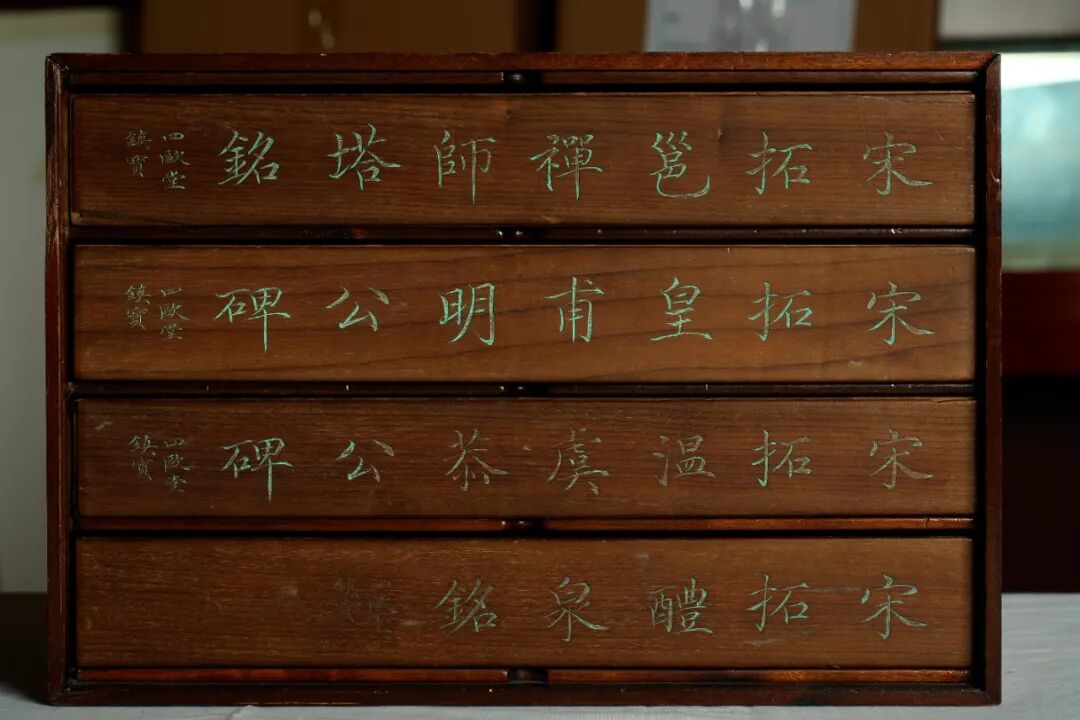 宋拓邕禪師塔銘
四歐堂
鎮寶
宋拓皇甫明公碑
四歐堂
鎮寶
宋拓温虞恭公碑
四歐堂
鎮寶
宋拓醴泉銘
四歐堂
鎮寶